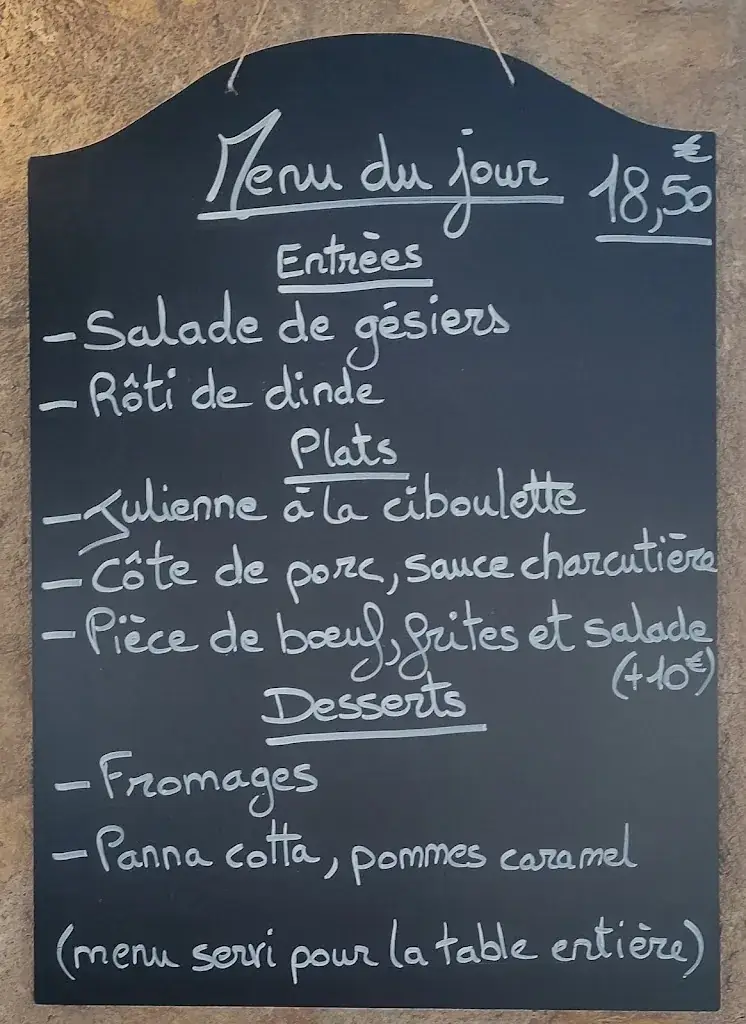 Menu du jour 18,50 €
Entrèes
- Salade de gésiers
- Rôti de dinde
Plats
- Julienne à la ciboulette
- Côte de porc, sauce charcutière
- Pièce de bœuf, frites et salade
(+10€)
Desserts
- Fromages
- Panna cotta, pommes caramel
(menu servi pour la table entière)